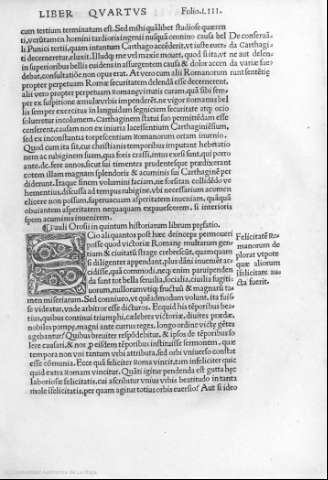 LIBER QVARTVS Folio.LIII.
cum tertium terminatum est. Sed mihi quālibet studiose quæren
ti, verūtamen homini tardioris ingenii nusquā omnino causa bel
li Punici tertii, quam intantum Carthago accēderit, vt iuste euer
ti decerneretur, eluxit.
in superioribus bellis euidens in assurgentem causa & dolor
debat, consultatiōe non opus erat. At verocum alii Romanorum
propter perpetuam Romæ securitatem delendā esse decernerent,
alii vero propter perpetuam Romanę virtutis curam, quā sibi sem
per ex suspitione æmulæ vrbis impenderēt, ne vigor romanus bel
lis semper exercitus in languidam segniciem securitate atque ocio
solueretur incolumem Carthaginem statui suo permittēdam esse
censerent, causam non ex iniuria lacessentium Carthaginēsium,
sed ex inconstantia torpescentium Romanorum ortam inuenio.
Quod cum ita sit, cur christianis temporibus imputant hebetatio
nem ac rubiginem suam, qua foris crassi, intus exesi sunt, qui porro
ante.
cotem illam magnam splendoris & acuminis sui Carthaginē per
diderunt. Itaque finem volumini faciam, ne forsitan collidēdo ve
hementius, discussa ad tempus rubigine, vbi necessarium acumen
elicere non possum, superuacuam asperitatem inueniam, quāquā
obuiantem asperitatem nequaquam expauescerem, si interioris
spem acuminis inuenirem.
Pauli Orosii in quintum historiarum librum præfatio.
Scio aliquantos post hæc deincepe permoueri
posse quod victoriæ Romanę multarum gen
tium & ciuitatū strage crebrescūt, quamquam
si diligenter appendant, plus dāni inueniēt ac
cidisse, quā commodi, neque enim paruipenden
da sunt tot bella seruilia, socialia, ciuilia fugiti
uorum, nullorum vtique fructuū & magnarū ta
men miseriarum. Sed conniueo, vt quēadmodum volunt, ita fuis
se videatur, vnde arbitror esse dicturos. Ecquid his tēporibus bea
tius, quibus continui triumphi, celebres victoriæ, diuites prædæ,
nobiles pompæ, magni ante currus reges, longo ordine victę gētes
agebantur?
lere causari, & non
tempora non vni tantum vrbi attributa, sed orbi vniuerso constat
esse cōmunia. Ecce quā feliciter Roma vincit, tam infeliciter quic
quid extra Romam vincitur. Quāti igitur pendenda est gutta hęc
laboriosæ felicitatis, cui ascribitur vnius vrbis beatitudo in tanta
mole ifelicitatis, per quam agitur totius orbis euersio? Aut si ideo
De conseruā
da Carthagi
ne aut delen
da variæ fue
runt sentētię
Felicitatē Ro
manorum de
plorat vtpote
quæ aliorum
ifelicitate au
cta fuerit.